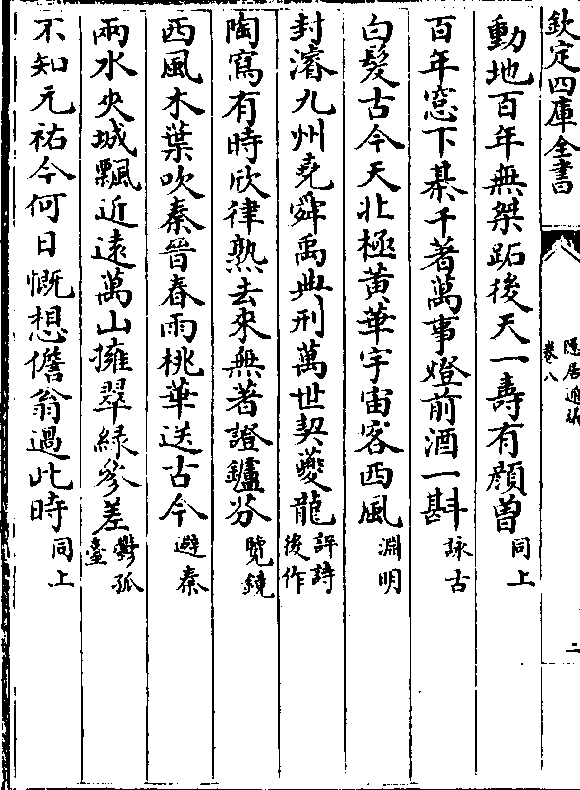 欽定四庫全書
隠居通議
卷八
二
動地百年無桀跖後天一壽有顔曾同上
百年窓下棊千著萬事燈前酒一斟詠古
白髮古今天北極黄華宇宙客西風淵明
封濬九州堯舜禹典刑萬世契夔龍評詩後作
陶寫有時欣律熟去來無著證鑪芬覽鏡
西風木葉吹秦晉春雨桃華送古今避秦
兩水夾城飄近遠萬山擁翠緑參差鬱孤臺
不知元祐今何日慨想儋翁過此時同上